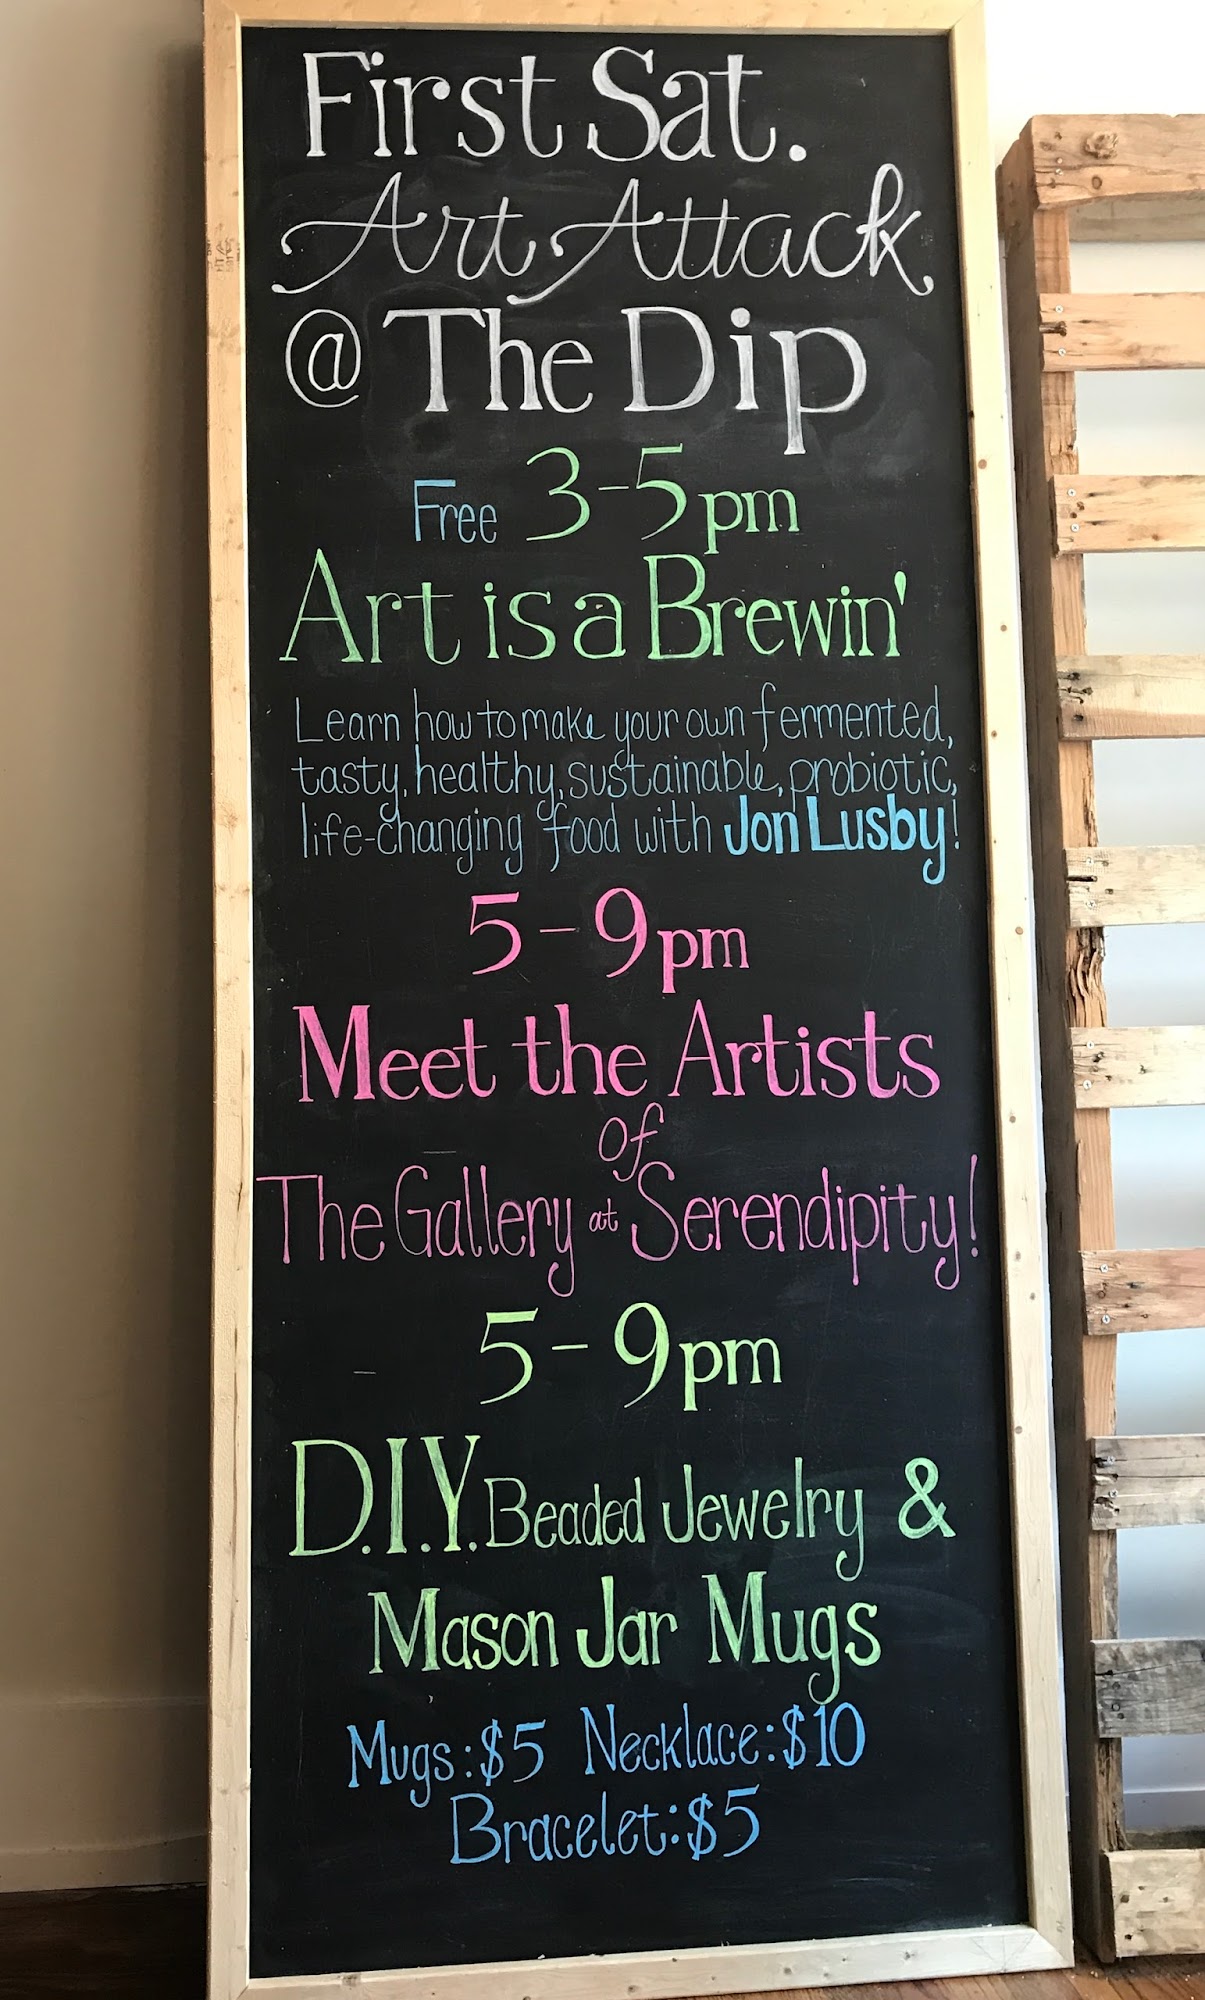 First Sat.
Art Attack
@ The Dip
Free 3-5pm
Art is a Brewin'
Learn how to make your own fermented,
tasty, healthy, sustainable, probiotic,
life-changing food with Jon Lusby!
5-9pm
Meet the Artists
of
The Gallery at Serendipity!
5-9pm
D.I.Y. Beaded Jewelry &
Mason Jar Mugs
Mugs:$5 Necklace:$10
Bracelet:$5